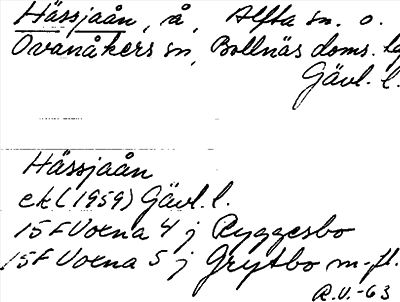 Hässjaån, å, Alfta sn. o.
Ovanåkers sn, Bollnäs doms. lg
Gävl. l.
Hässjaån
ek (1959) Gävl. l.
15F Voxna 4 j Ryggesbo
15F Voxna 5 j Grytbo m.fl.
R.U.-63